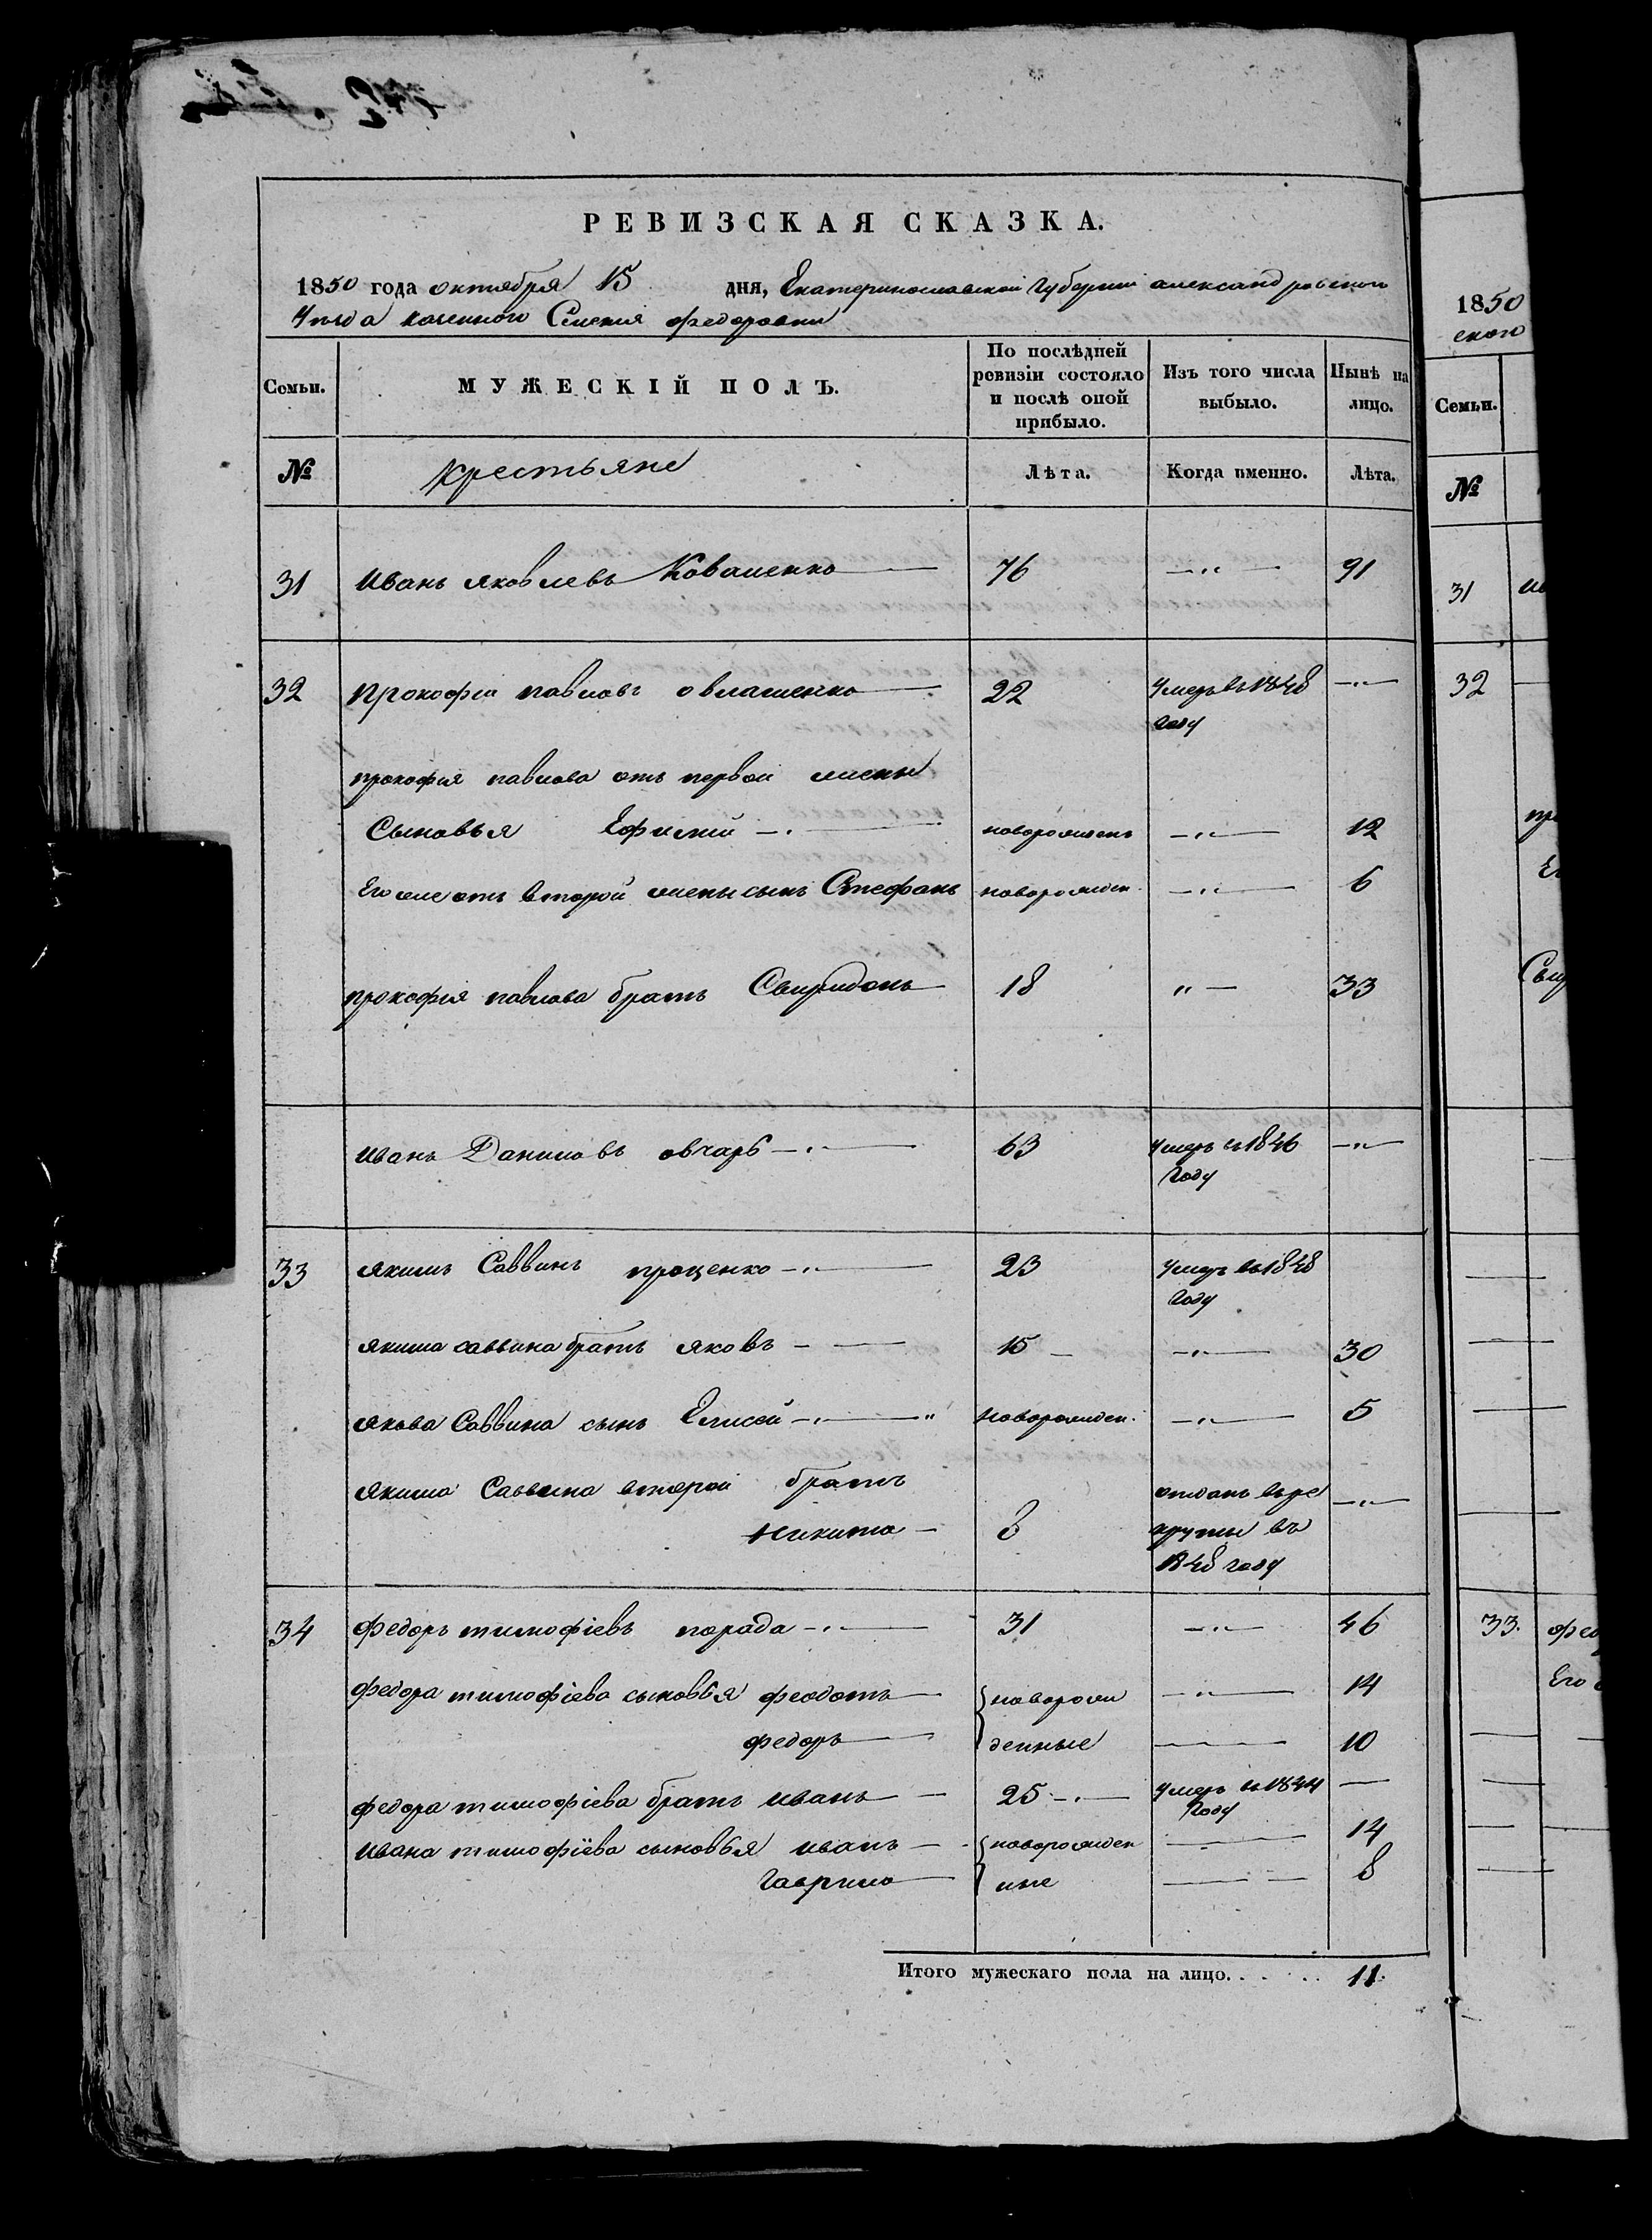 РЕВИЗСКАЯ СКАЗКА.
1850 года октября 15 дня, Екатеринославской Губернии александровского
Уѣзда казенного Селения федоровки
Семьи. МУЖЕСКІЙ ПОЛЪ. По послѣдней ревизіи состояло и послѣ оной прибыло. Изъ того числа выбыло. Нынѣ на лицо.
№ крестьяне Лѣта. Когда именно. Лѣта.
31 Иванъ яковлевъ Коваленко 76 —"— 91
32 Прокофій павловъ 22 Умеръ въ 1848 году —"—
прокофия павлова отъ первой жены
Сыновья Ефимій новорожденъ —"— 12
Его же отъ второй жены сынъ Стефанъ новорожден. —"— 6
прокофия павлова братъ Свиридонъ 18 "— 33
Иванъ Даниловъ овчаръ 63 Умеръ въ 1846 году —"—
33 якимъ Саввинъ проценко 23 Умеръ въ 1848 году
якима саввина братъ яковъ 15 —"— 30
якова Саввина сынъ Елисей новорожден. —"— 5
якима Саввина второй братъ
никита 3 отданъ въ рекруты въ 1848 году —"—
34 федоръ тимофіевъ порада 31 —"— 46
федора тимофіева сыновья феодотъ новорож —"— 14
федоръ денные — 10
федора тимофіева братъ иванъ 25 Умеръ въ 1844 году —
ивана тимофіева сыновья иванъ новорожден — 14
гаврило ные — 8
Итого мужескаго пола на лицо. 11.
1850
ского
Семьи.
№
31
32
33.
Его